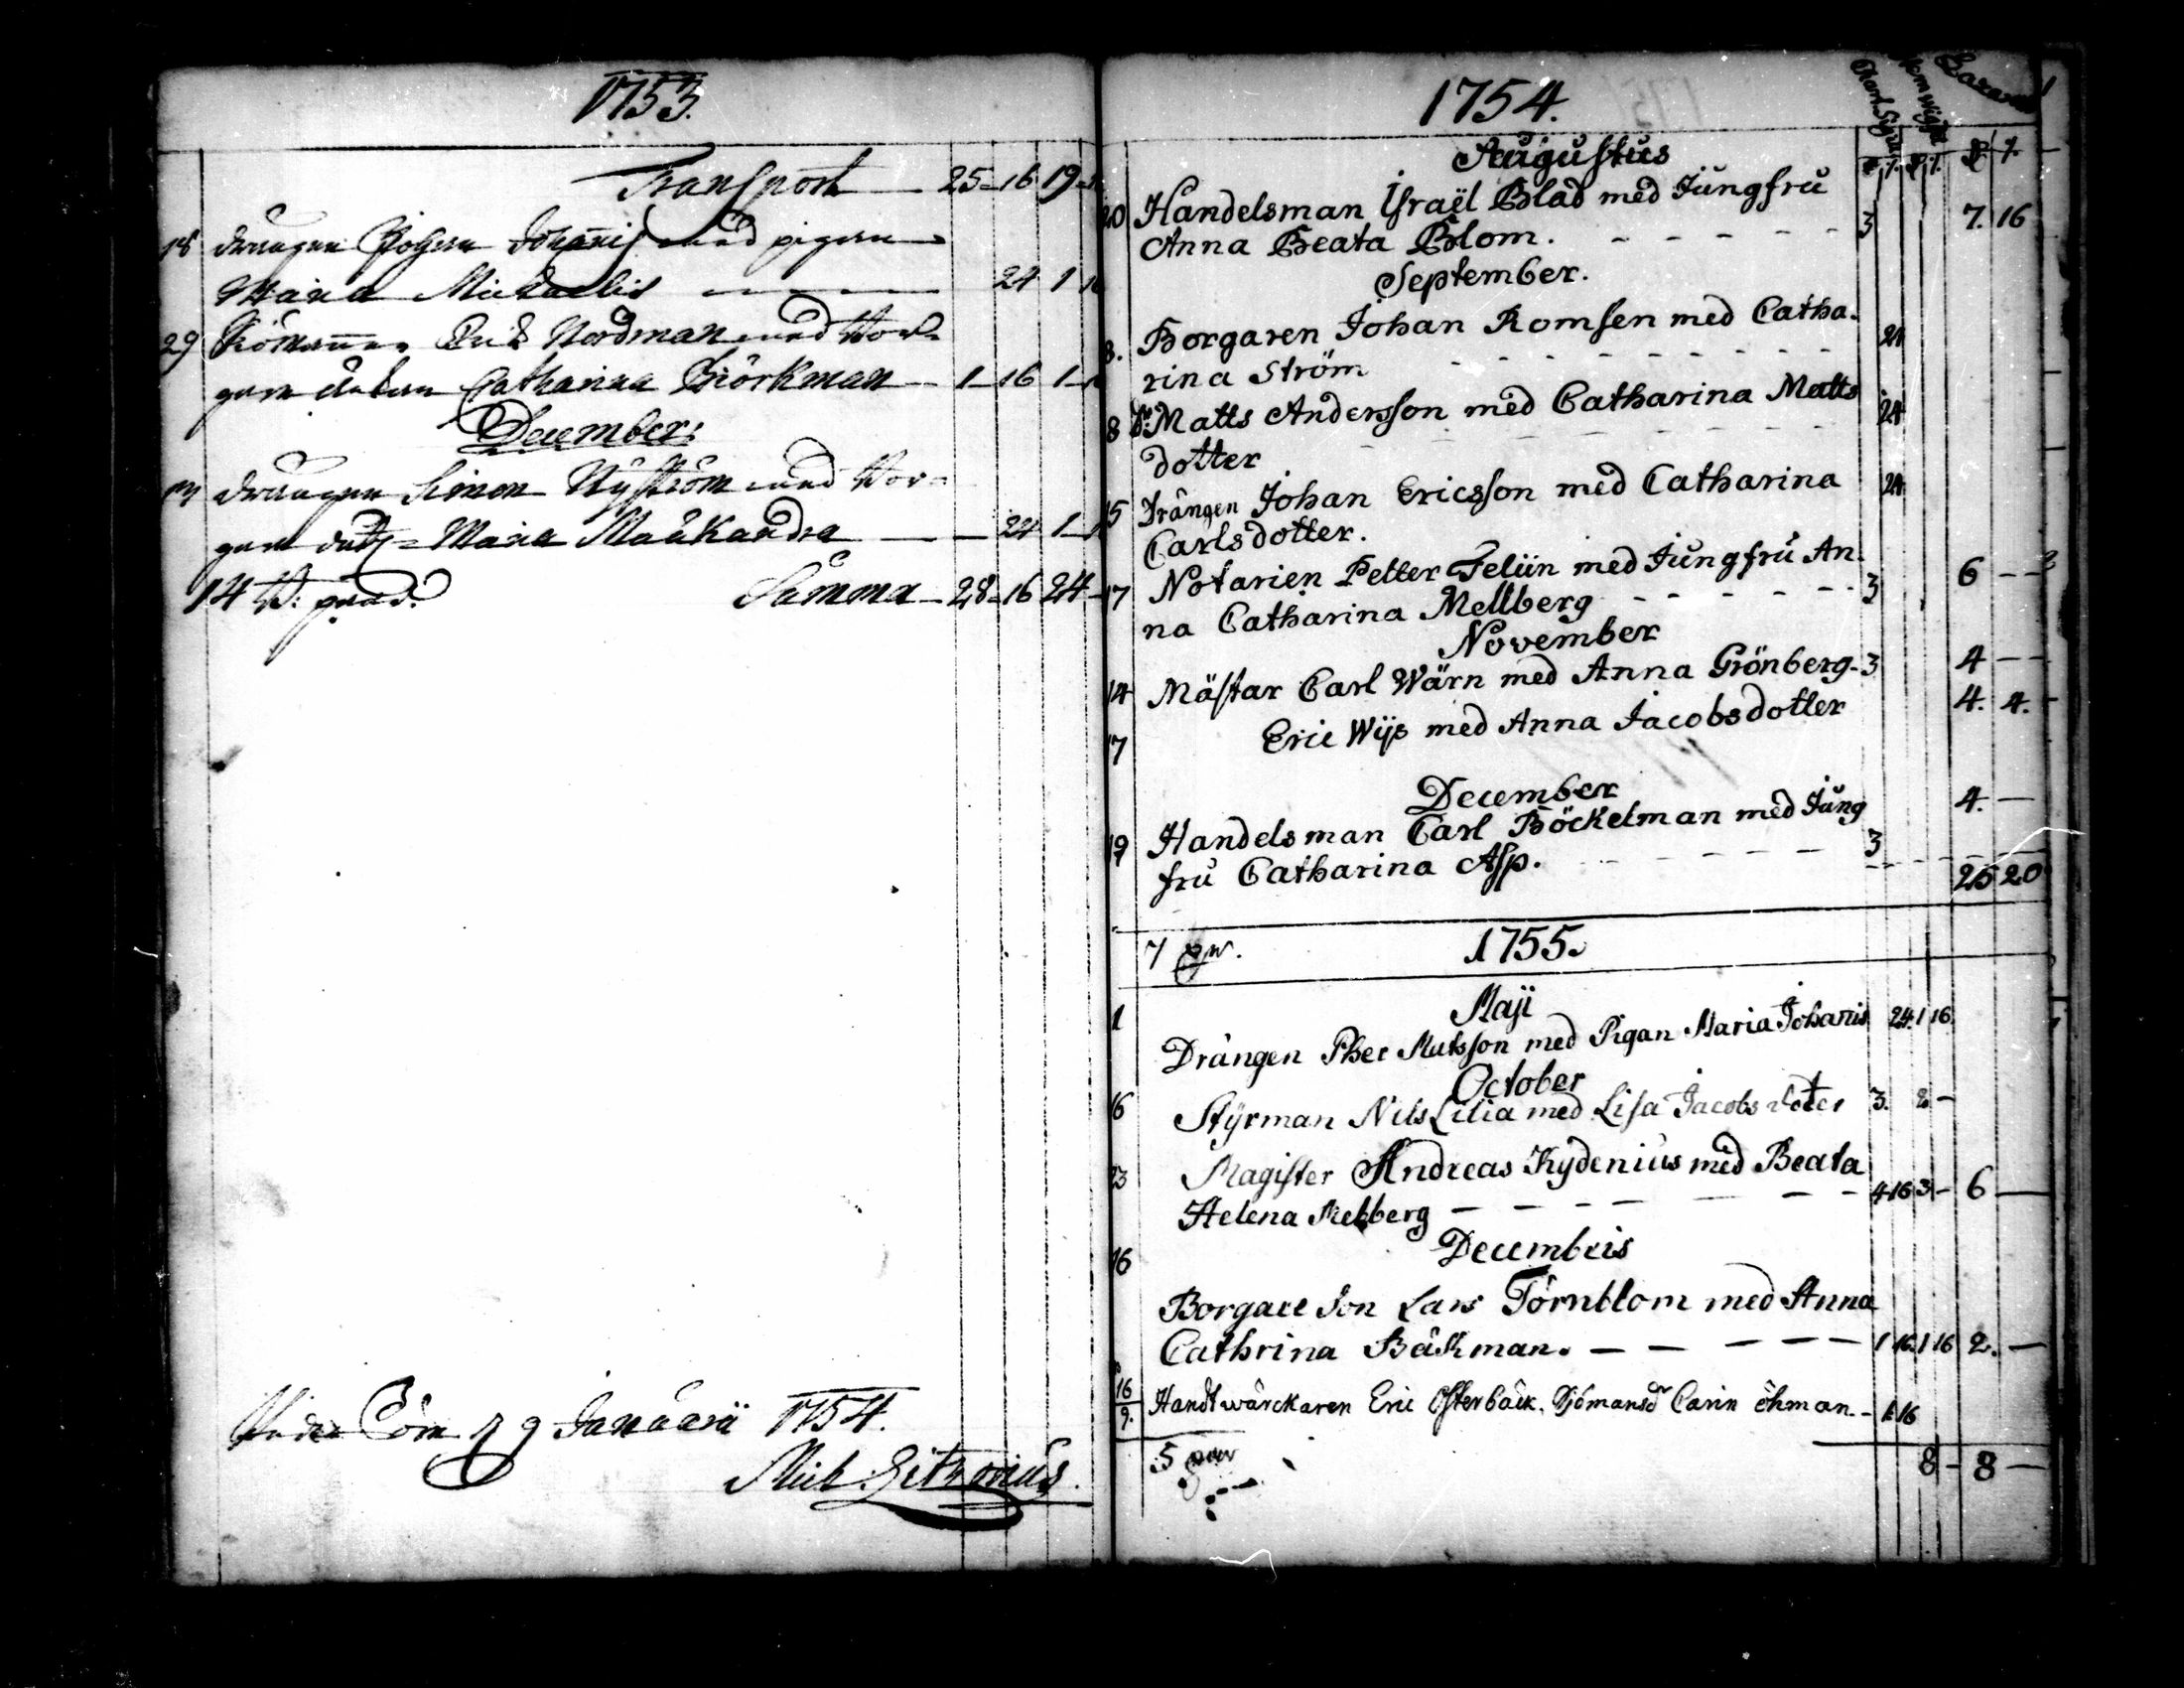 1753.
Transport 25 16 19
18 drängen Johan Johannis. med pigan
Maria Michaelis 24 1
29 Erik Nordman med Bor
Catharina Björkman 1 16 1
December:
drängen Simon Nyström med Bor-
Maria 24 1
14 Summa 28 16 24
9 Januarii 1754.
Mich.
1754.
Augustus
20 Handelsman Israël Blad med Jungfru
Anna Beata Blom. 3 7. 16
September.
8. Borgaren Johan Romsen med Catha- 24
rina Ström
8 Do: Matts Andersson med Catharina Matts 24
dotter
15 Drängen Johan Ericsson med Catharina 24
Carlsdotter.
17 Notarien Petter Feliin med Jungfru An- 6
na Catharina Mellberg 3
November
14 Mästar Carl Wärn med Anna Grönberg 3 4
17 Eric Wijs med Anna Jacobsdotter 4. 4.
December
19 Handelsman Carl Böckelman med Jung 4.
fru Catharina Asp. 3
25 20
7 par. 1755.
Maji
1 Drängen Pher Matsson med Pigan Maria Johanis 24. 1 16.
October
16 Styrman Nils Lilia med Lisa Jacobs doter 3. 2 -
23 Magister Andreas Kydenius med Beata
Helena Mellberg 4 16 3 - 6 -
Decembris
16
Borgare Son Lars Törnblom med Anna
Cathrina Bäkman. 1 16. 1 16 2. -
16/9. Handtwärckaren Eric Österbäck. Sjömansd Carin öhman. 1 16
5 par 8 - 8 -